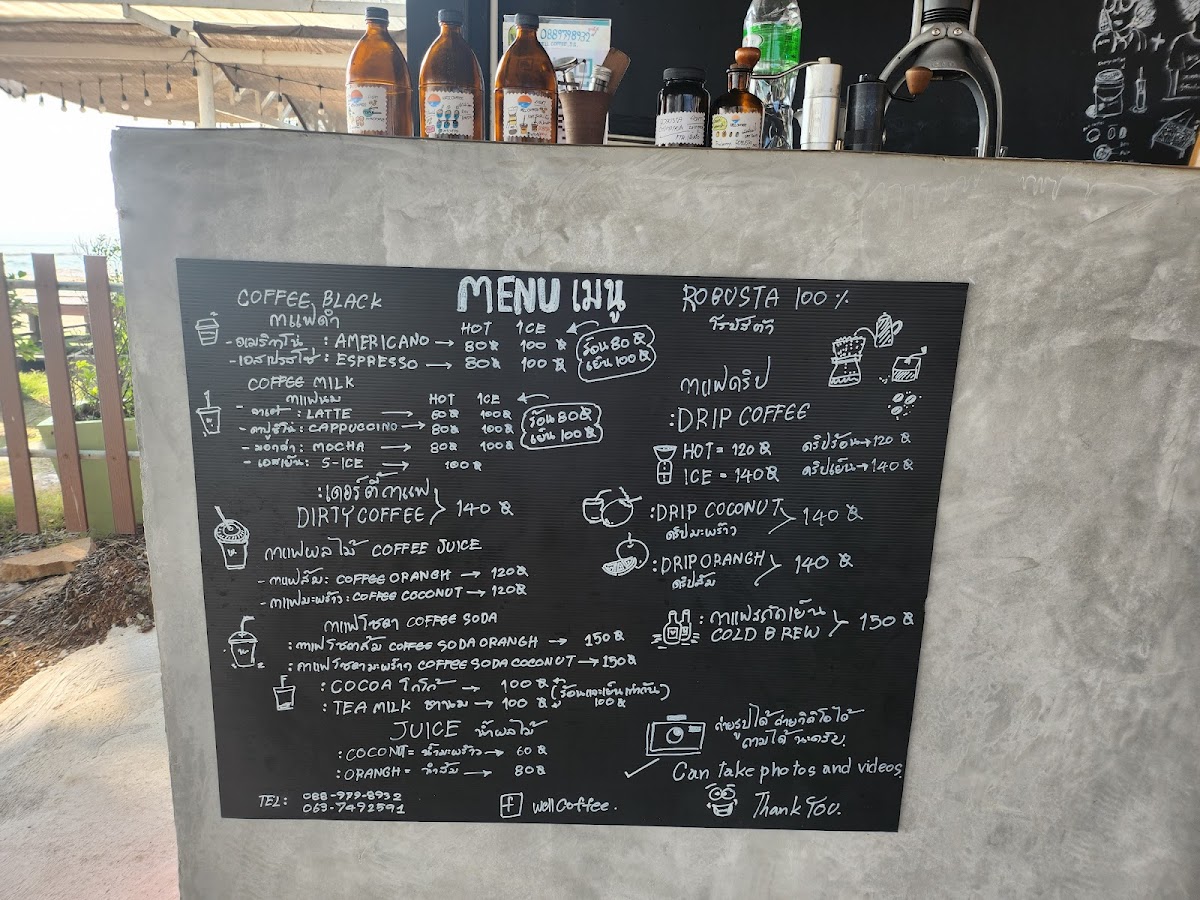 0889798932
MENU เมนู
COFFEE BLACK
กาแฟดำ
HOT ICE
- อเมริกาโน่ : AMERICANO → 80฿ 100฿
- เอสเปรสโซ่ : ESPRESSO → 80฿ 100฿
ร้อน 80฿
เย็น 100฿
COFFEE MILK
กาแฟนม
HOT ICE
- ลาเต้ : LATTE → 80฿ 100฿
- คาปูชิโน่ : CAPPUCCINO → 80฿ 100฿
- มอคค่า : MOCHA → 80฿ 100฿
- เอสเย็น : S-ICE → 100฿
ร้อน 80฿
เย็น 100฿
: เดอร์ตี้กาแฟ
DIRTY COFFEE } 140฿
กาแฟผลไม้ COFFEE JUICE
- กาแฟส้ม : COFFEE ORANGH → 120฿
- กาแฟมะพร้าว : COFFEE COCONUT → 120฿
กาแฟโซดา COFFEE SODA
: กาแฟโซดาส้ม COFFEE SODA ORANGH → 150฿
: กาแฟโซดามะพร้าว COFFEE SODA COCONUT → 150฿
: COCOA โกโก้ → 100฿
: TEA MILK ชานม → 100฿
(ร้อนและเย็นเท่ากัน)
100฿
JUICE น้ำผลไม้
: COCONUT = น้ำมะพร้าว → 60฿
: ORANGH = น้ำส้ม → 80฿
TEL : 088-979-8932
063-7492591
f Well Coffee.
ROBUSTA 100%
โรบัสต้า
กาแฟดริป
: DRIP COFFEE
HOT = 120฿ ดริปร้อน → 120฿
ICE = 140฿ ดริปเย็น → 140฿
: DRIP COCONUT > 140฿
ดริปมะพร้าว
: DRIP ORANGH > 140฿
ดริปส้ม
: กาแฟสกัดเย็น
COLD BREW } 150฿
ถ่ายรูปได้ ถ่ายวิดีโอได้
ถามได้ นะครับ.
✓ Can take photos and videos.
Thank You.